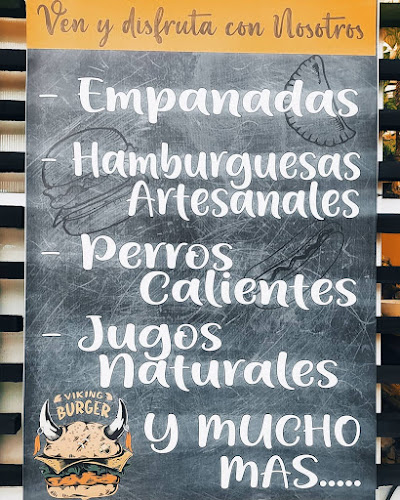 Ven y disfruta con Nosotros
- Empanadas
- Hamburguesas
Artesanales
- Perros
Calientes
- Jugos
Naturales
VIKING
BURGER
Y MUCHO
MAS.....